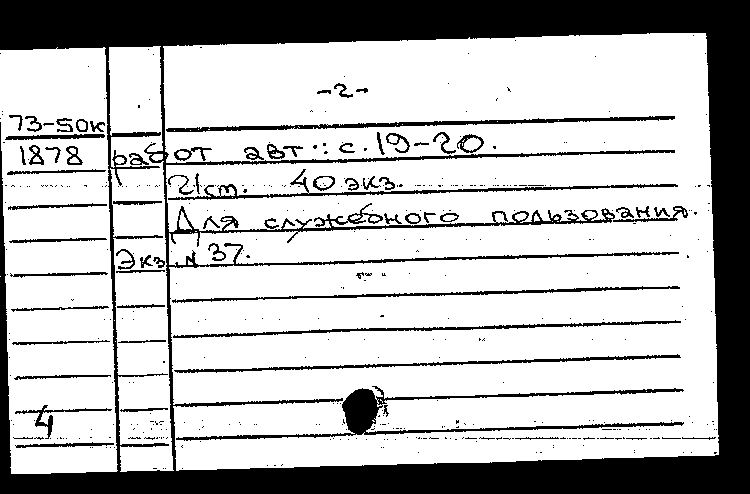 -2-
73-50к
1878 работ авт.: с.19-20.
21 ст. 40 экз.
Для служебного пользования.
Экз. № 37.
4